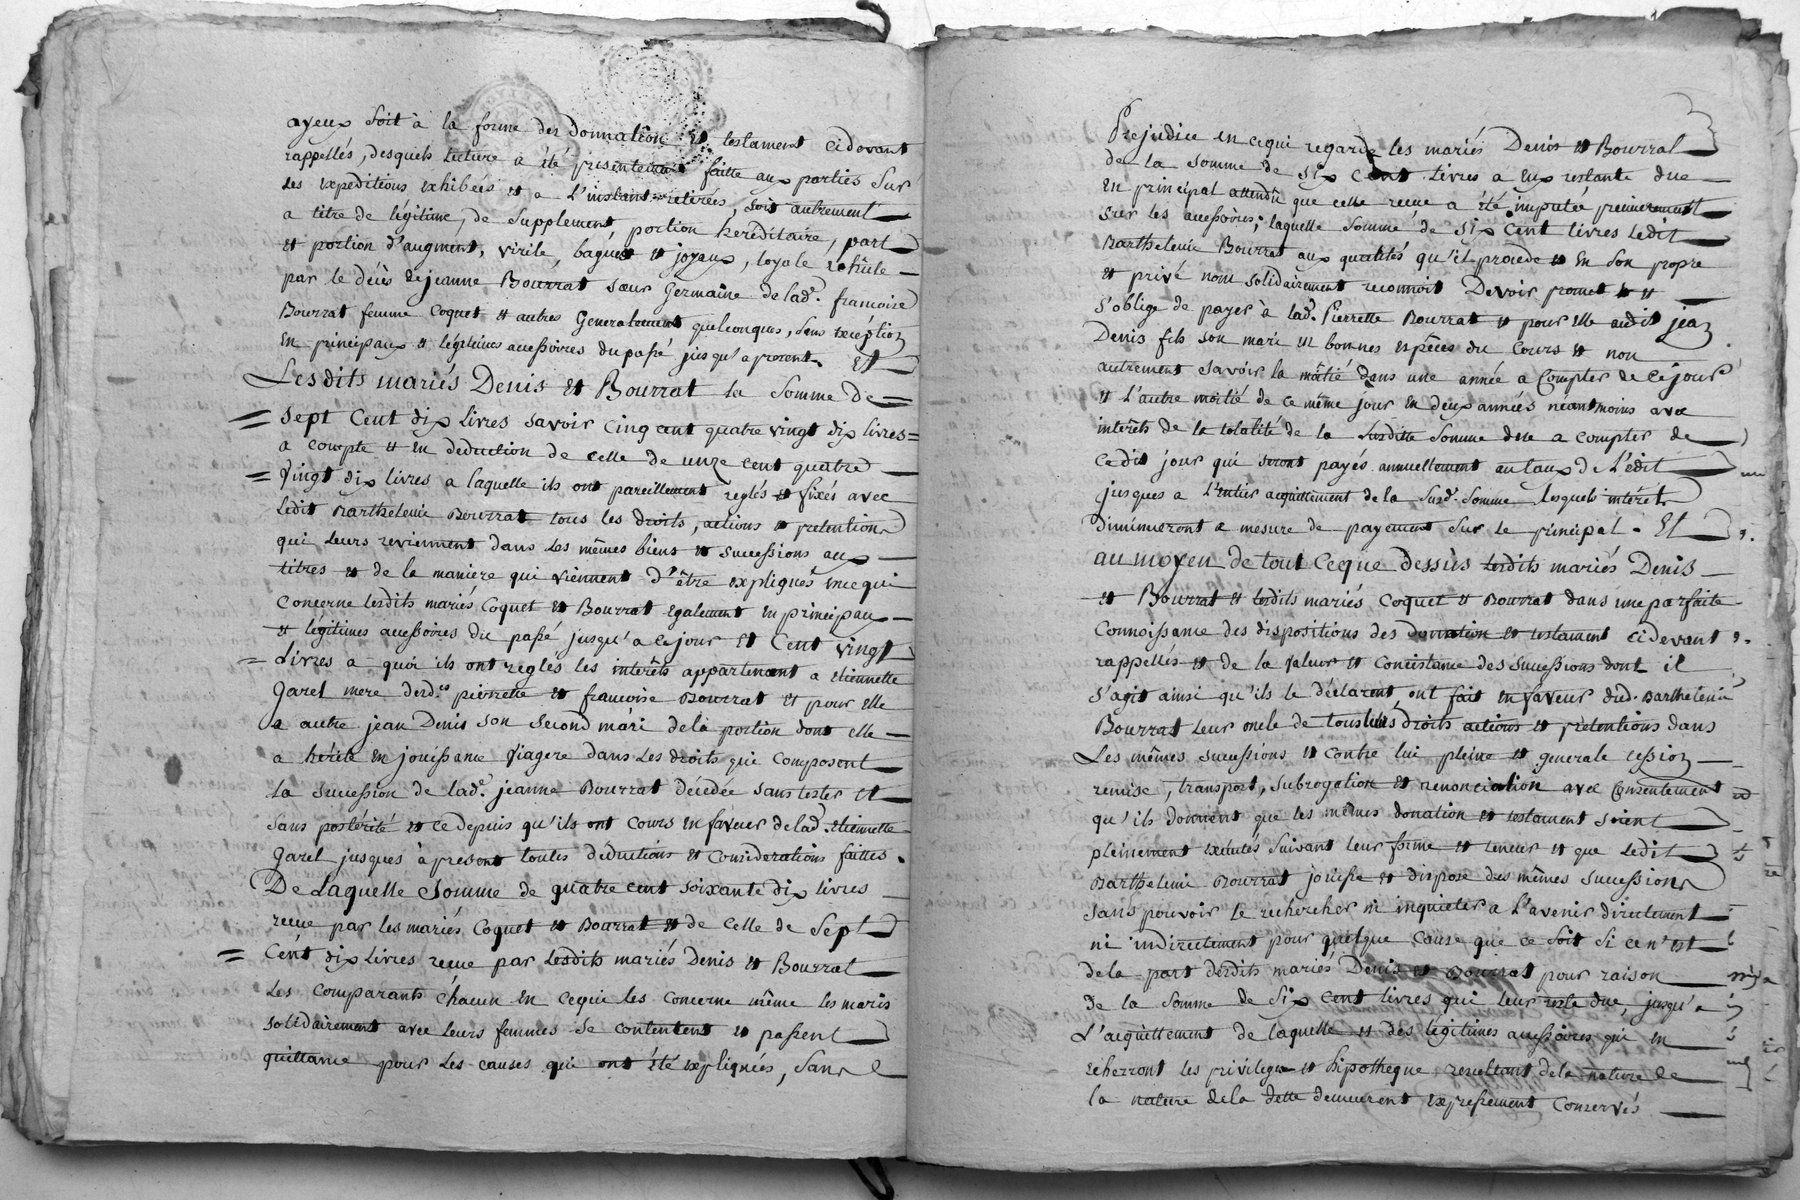 ayeux soit à la forme des Donnation et testament cidevant
rappellés, desquels lecture a été presentement faitte aux parties sur
les expeditions exhibées et a l'instant retirées, soit autrement
a titre de légitime, de supplement, portion heréditaire, part
et portion d'augment, virile, bagues et joyaux, loyale echûte
par le décès de jeanne Bourrat sœur Germaine de lad.e francoise
Bourrat femme Coquet et autres Generalement quelconques, sans exception
en principaux et légitimes accessoires du passé jusqu'a present. Et
Lesdits mariés Denis et Bourrat la somme de
sept Cent dix livres savoir Cinq cent quatre vingt dix livres
a compte et en deduction de celle de unze cent quatre
Vingt dix livres a laquelle ils ont pareillement reglés et fixés avec
ledit Barthelemie Bourrat tous les droits, actions et pretentions
qui leurs reviennent dans les mêmes biens et successions aux
titres et de la maniere qui viennent d'être expliqués en ce qui
Concerne lesdits mariés Coquet et Bourrat egalement en principau
et légitimes accessoires du passé jusqu'a ce jour et Cent vingt
Livres a quoi ils ont reglés les interêts appartenant a etiennette
Garel mere desd.es pierrette et francoise Bourrat et pour elle
a autre jean Denis son second mari de la portion dont elle
a hérité en jouissance Viagere dans les droits qui composent
la succession de lad.e jeanne Bourrat décédée sans tester et
sans postérité et ce depuis qu'ils ont cours en faveur de lad. etiennette
Garel jusques à present toutes déductions et considerations faittes.
De Laquelle somme de quatre cent soixante dix livres
recue par les mariés Coquet et Bourrat et de celle de Sept
Cent dix Livres recue par lesdits mariés Denis et Bourrat
les comparants chacun en cequi les concerne même les maris
solidairement avec leurs femmes se contentent et passent
quittance pour les causes qui ont été expliquées, sans
Prejudice en cequi regarde les mariés Denis et Bourrat
de la somme de six cent livres a eux restante due
en principal attendû que celle recue a été imputée premierement
sur les accessoires; laquelle somme de six cent livres ledit
Barthelemie Bourrat aux qualités qu'il procede et en son propre
et privé nom solidairement reconnoit Devoir promet et
s'oblige de payer à lad. Pierrette Bourrat et pour elle audit jean
Denis fils son mari en bonnes espèces du cours et non
autrement savoir la môitié dans une année a Compter de ce jour
et l'autre moitié de ce même jour en deux années néantmoins avec
interêts de la totalité de la susditte somme due a compter de
cedit jour qui seront payés annuellement au taux de l'édit
jusques a l'entier acquittement de la susd. somme lesquels interêts
diminueront a mesure de payement sur le principal. Et
au moyen de tout ceque dessus lesdits mariés Denis
et Bourrat et lesdits mariés Coquet et Bourrat dans une parfaite
Connoissance des dispositions des donnation et testament cidevant
rappellés et de la valeur et Concistance des successions dont il
s'agit ainsi qu'ils le déclarent ont fait en faveur dud. Barthelemie
Bourrat leur oncle de tous leurs droits actions et pretentions dans
Les mêmes successions et contre lui pleine et generale cession
remise, transport, subrogation et renonciation avec Consentement
qu'ils donnent que les mêmes donation et testament soient
pleinement executés suivant leur forme et teneur et que ledit
Barthelemi Bourrat jouisse et dispose des mêmes successions
sans pouvoir le rechercher ni inquieter a l'avenir directement
ni indirectement pour quelque cause que ce soit si ce n'est
de la part desdits mariés Denis et Bourrat pour raison
de la somme de six cent livres qui leur reste due, jusqu'a
L'acquittement de laquelle et des légitimes accessoires qui en
écherront les privilege et hipotheque resultant de la nature de
la nature de la dette demeurent expressement conservés